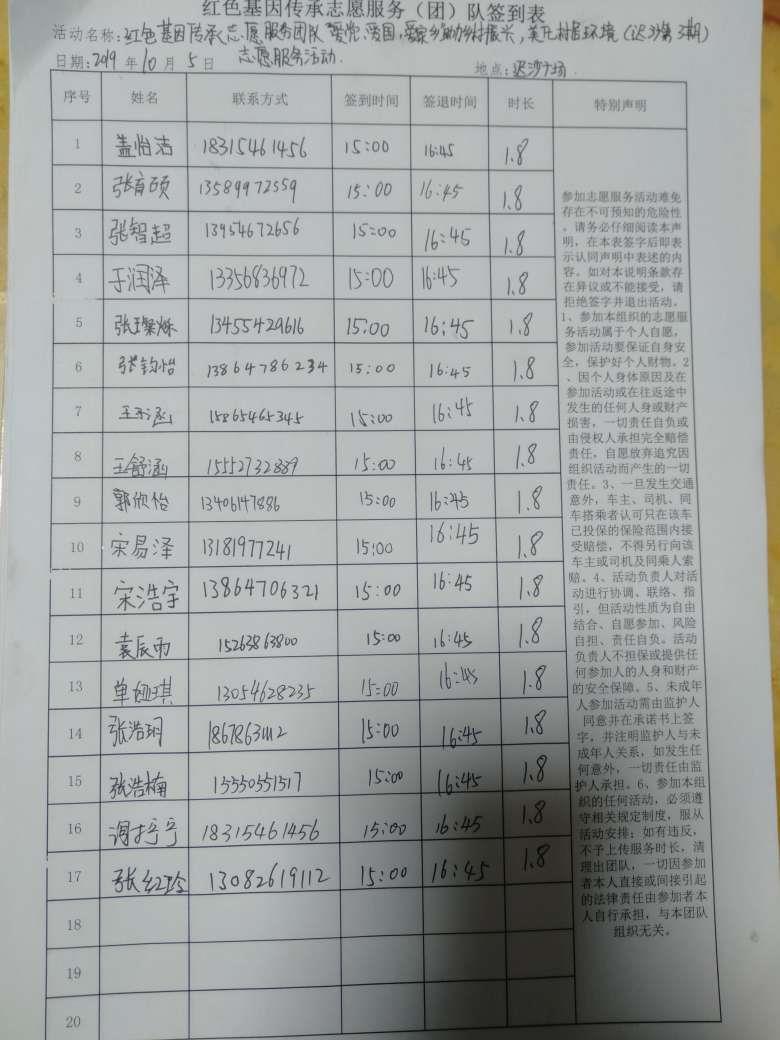 红色基因传承志愿服务（团）队签到表
活动名称：红色基因传承志愿服务团队"爱党、爱国、爱家乡"助力乡村振兴，美化村居环境（迟沙第3期）
志愿服务活动.
日期：2019年10月5日
地点：迟沙广场.
序号 姓名 联系方式 签到时间 签退时间 时长 特别声明
1 盖怡洁 18315461456 15:00 16:45 1.8
2 张育硕 13589972559 15:00 16:45 1.8
3 张智超 13954672656 15:00 16:45 1.8
4 于润泽 13356836972 15:00 16:45 1.8
5 张璨烁 13455429616 15:00 16:45 1.8
6 张钧怡 13864786234 15:00 16:45 1.8
7 涵 15865465345 15:00 16:45 1.8
8 王舒涵 15552732889 15:00 16:45 1.8
9 郭欣怡 13406147886 15:00 16:45 1.8
10 宋易泽 13181977241 15:00 16:45 1.8
11 宋浩宇 13864706321 15:00 16:45 1.8
12 袁辰雨 15263863800 15:00 16:45 1.8
13 单 琪 13054628235 15:00 16:45 1.8
14 张浩玥 15:00 16:45 1.8
15 张浩楠 13550551517 15:00 16:45 1.8
16 18315461456 15:00 16:45 1.8
17 张红玲 13082619112 15:00 16:45 1.8
18
19
20
参加志愿服务活动难免
存在不可预知的危险性
，请务必仔细阅读本声
明，在本表签字后即表
示认同声明中表述的内
容。如对本说明条款存
在异议或不能接受，请
拒绝签字并退出活动。
1、参加本组织的志愿服
务活动属于个人自愿，
参加活动要保证自身安
全，保护好个人财物。2
、因个人身体原因及在
参加活动或在往返途中
发生的任何人身或财产
损害，一切责任自负或
由侵权人承担完全赔偿
责任，自愿放弃追究因
组织活动而产生的一切
责任。3、一旦发生交通
意外，车主、司机、同
车搭乘者认可只在该车
已投保的保险范围内接
受赔偿，不得另行向该
车主或司机及同乘人索
赔。4、活动负责人对活
动进行协调、联络、指
引，但活动性质为自由
结合、自愿参加、风险
自担、责任自负。活动
负责人不担保或提供任
何参加人的人身和财产
的安全保障。5、未成年
人参加活动需由监护人
同意并在承诺书上签
字，并注明监护人与未
成年人关系，如发生任
何意外，一切责任由监
护人承担。6、参加本组
织的任何活动，必须遵
守相关规定制度，服从
活动安排；如有违反，
不予上传服务时长，清
理出团队，一切因参加
者本人直接或间接引起
的法律责任由参加者本
人自行承担，与本团队
组织无关。